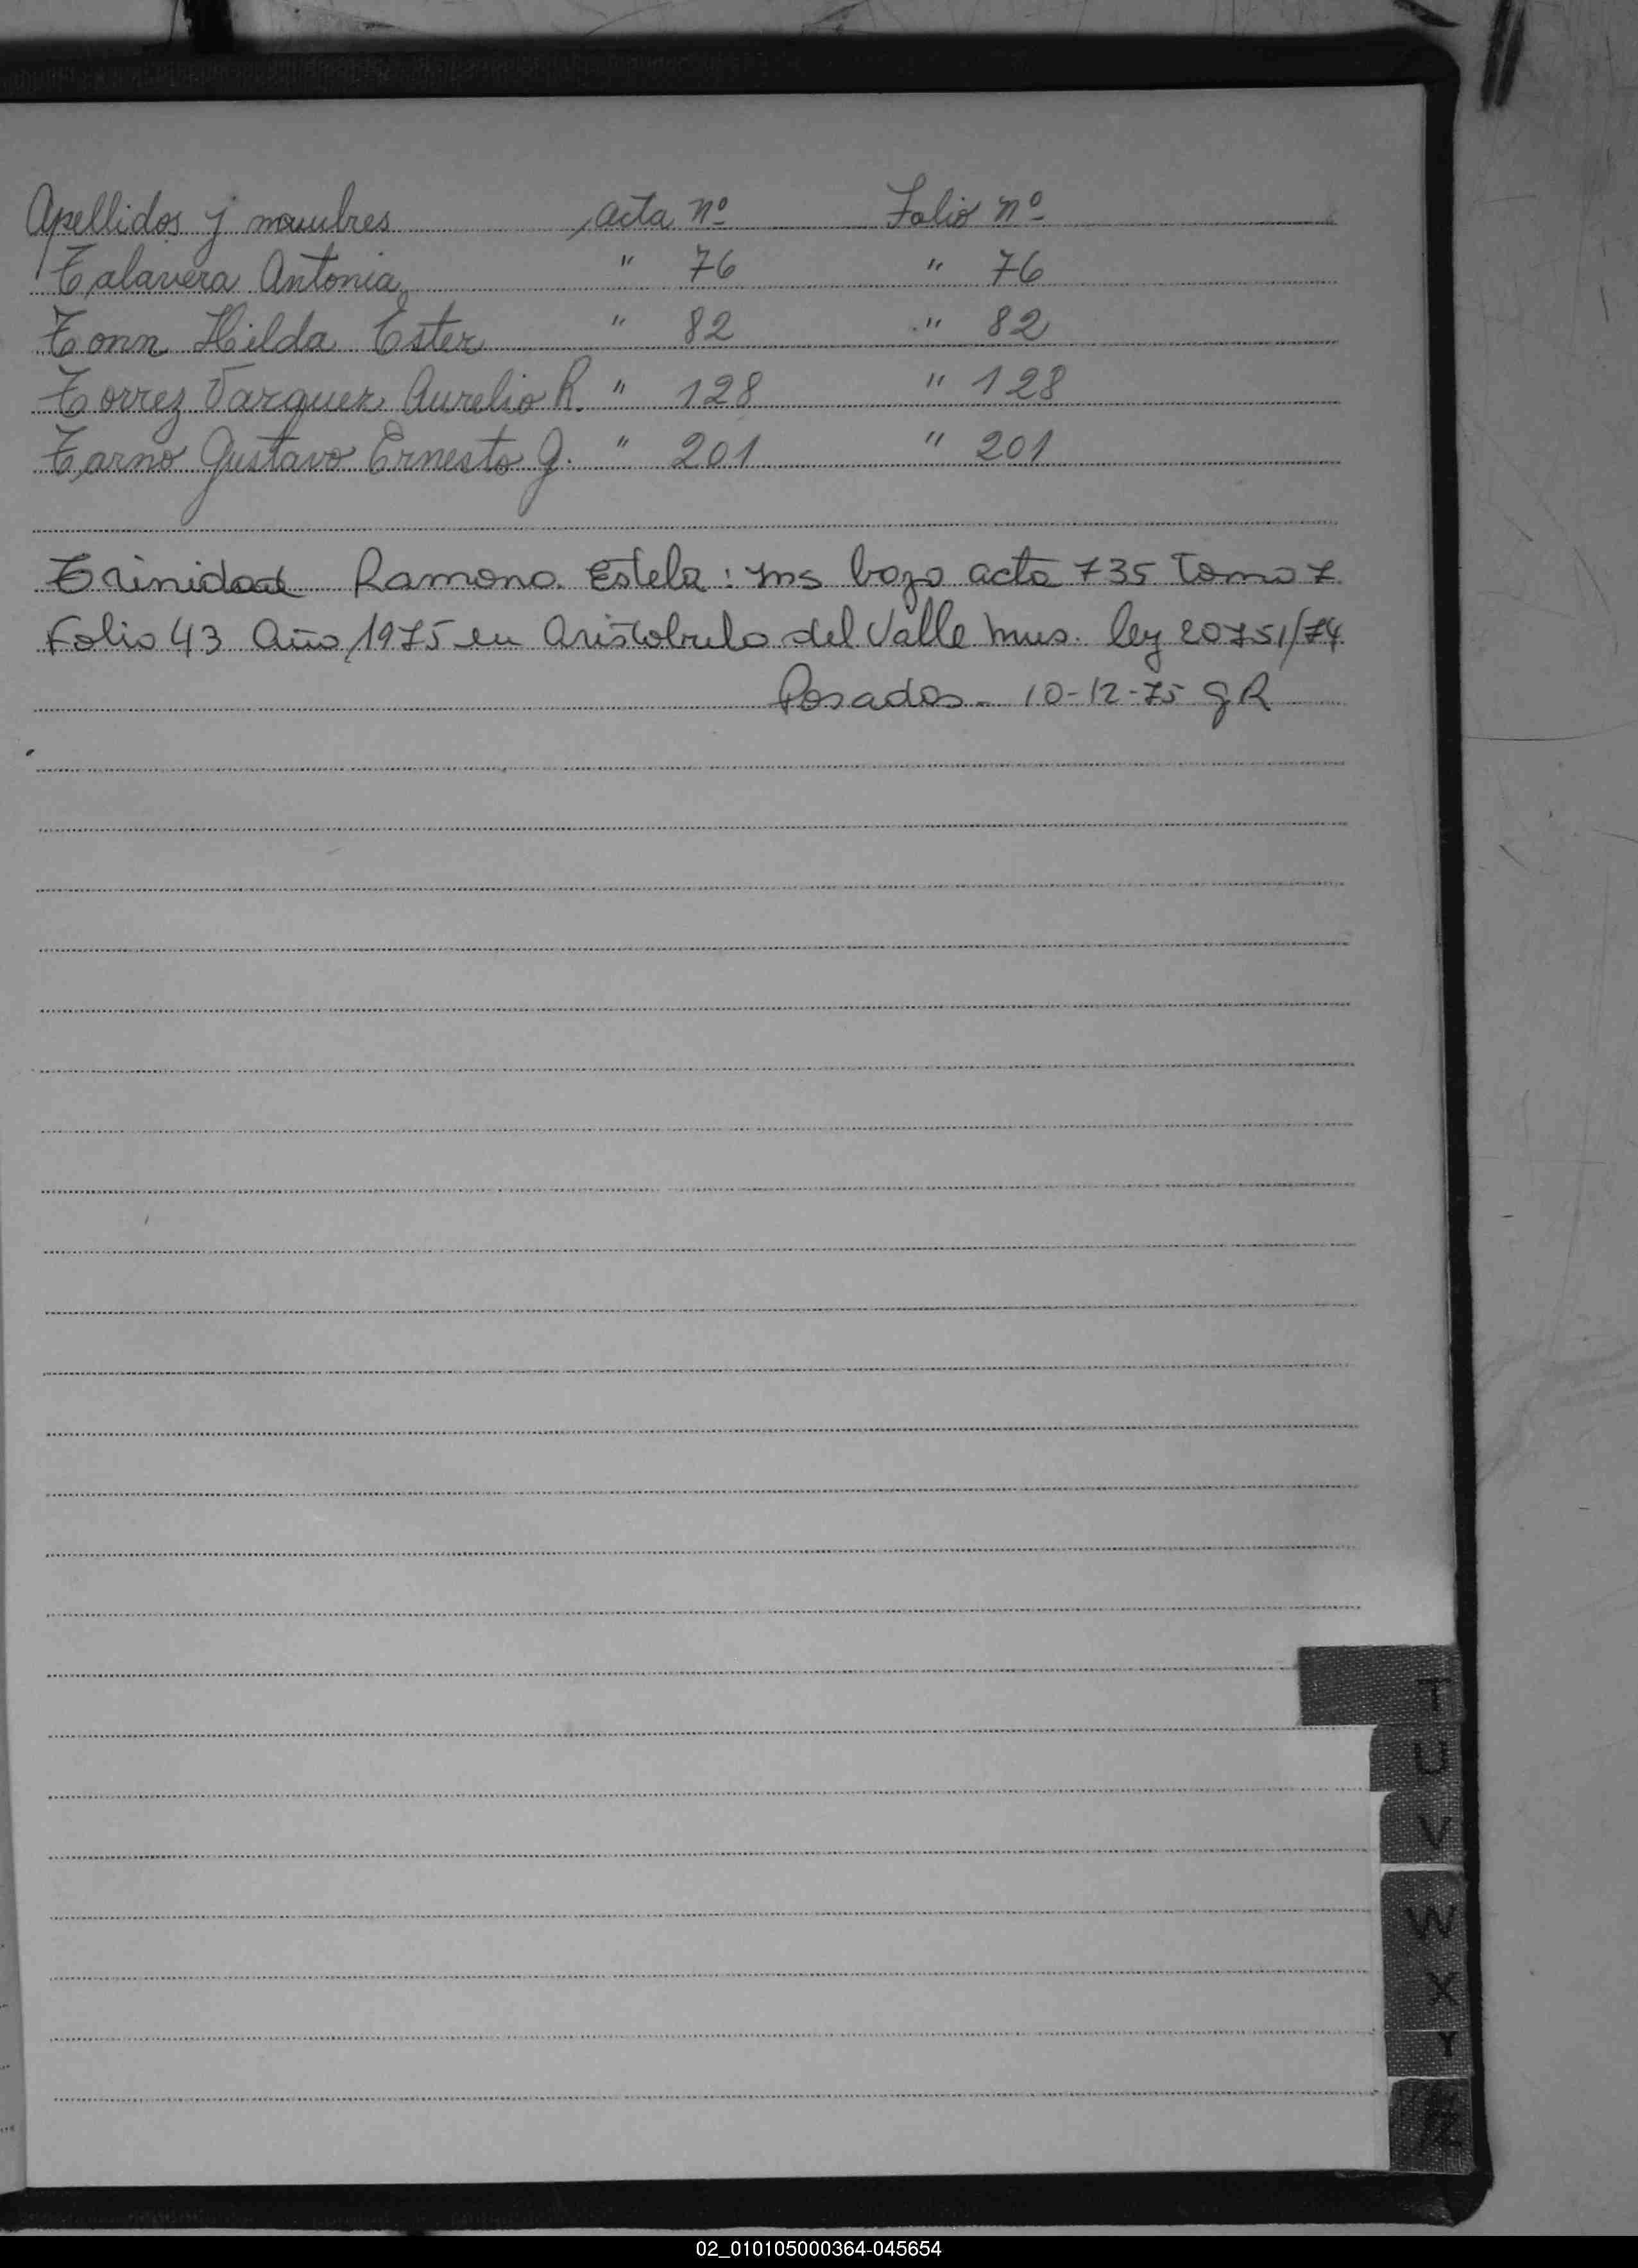 Apellidos y nombres acta nº Folio nº
Talavera Antonia " 76 " 76
Tonn Hilda Ester " 82 " 82
Torrez Vazquez Aurelio R. " 128 " 128
Tarno Gustavo Ernesto G. " 201 " 201
Trinidad Ramona Estela: Ins bajo acta 735 Tomo 7
Folio 43 Año 1975 en Aristobulo del Valle Mns. ley 20751/74
Posadas - 10-12-75 GR
T
U
V
W
X
Y
Z
02_010105000364-045654